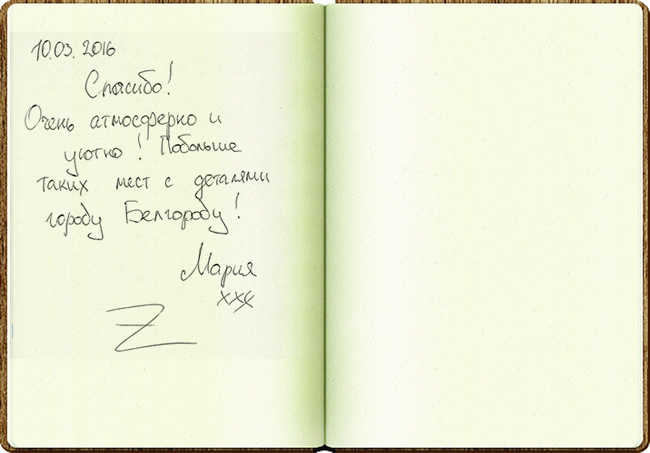 10.03.2016
Спасибо!
Очень атмосферно и
уютно! Побольше
таких мест с деталями
городу Белгороду!
Мария
xxx